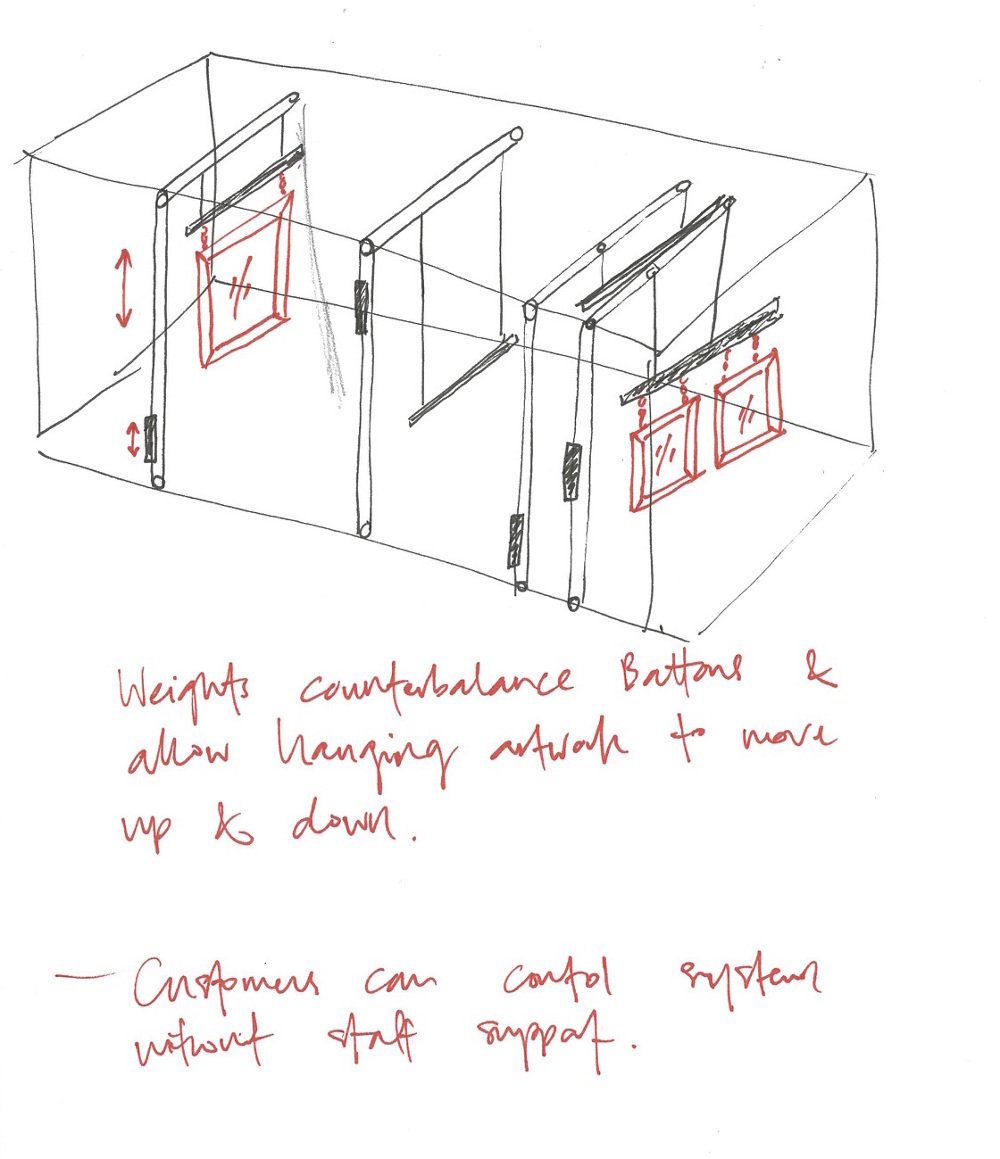 Weights counterbalance Battons &
allow hanging artwork to move
up & down.
— Customers can control system
without staff support.